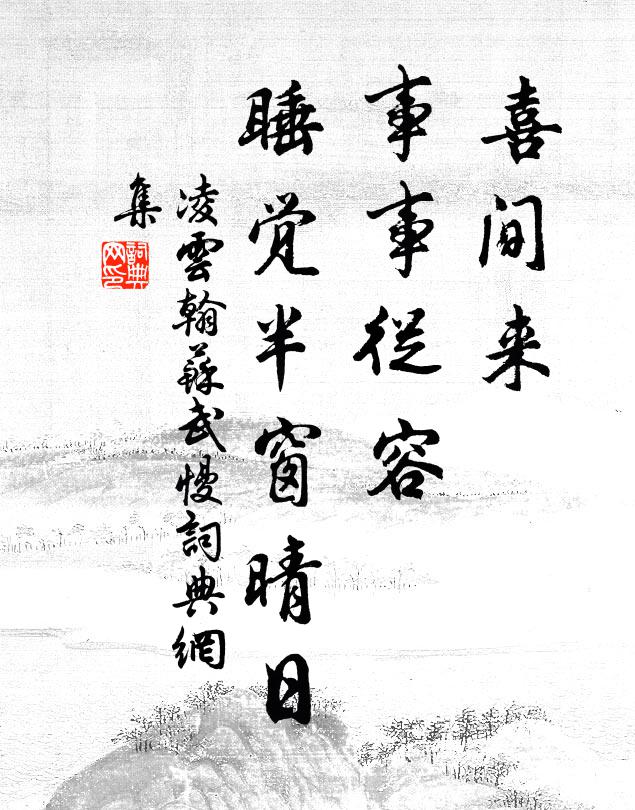 喜间来
事事从容
睡觉半窗晴日
凌雲翰蘇武慢詞典網
集
詞典
网印